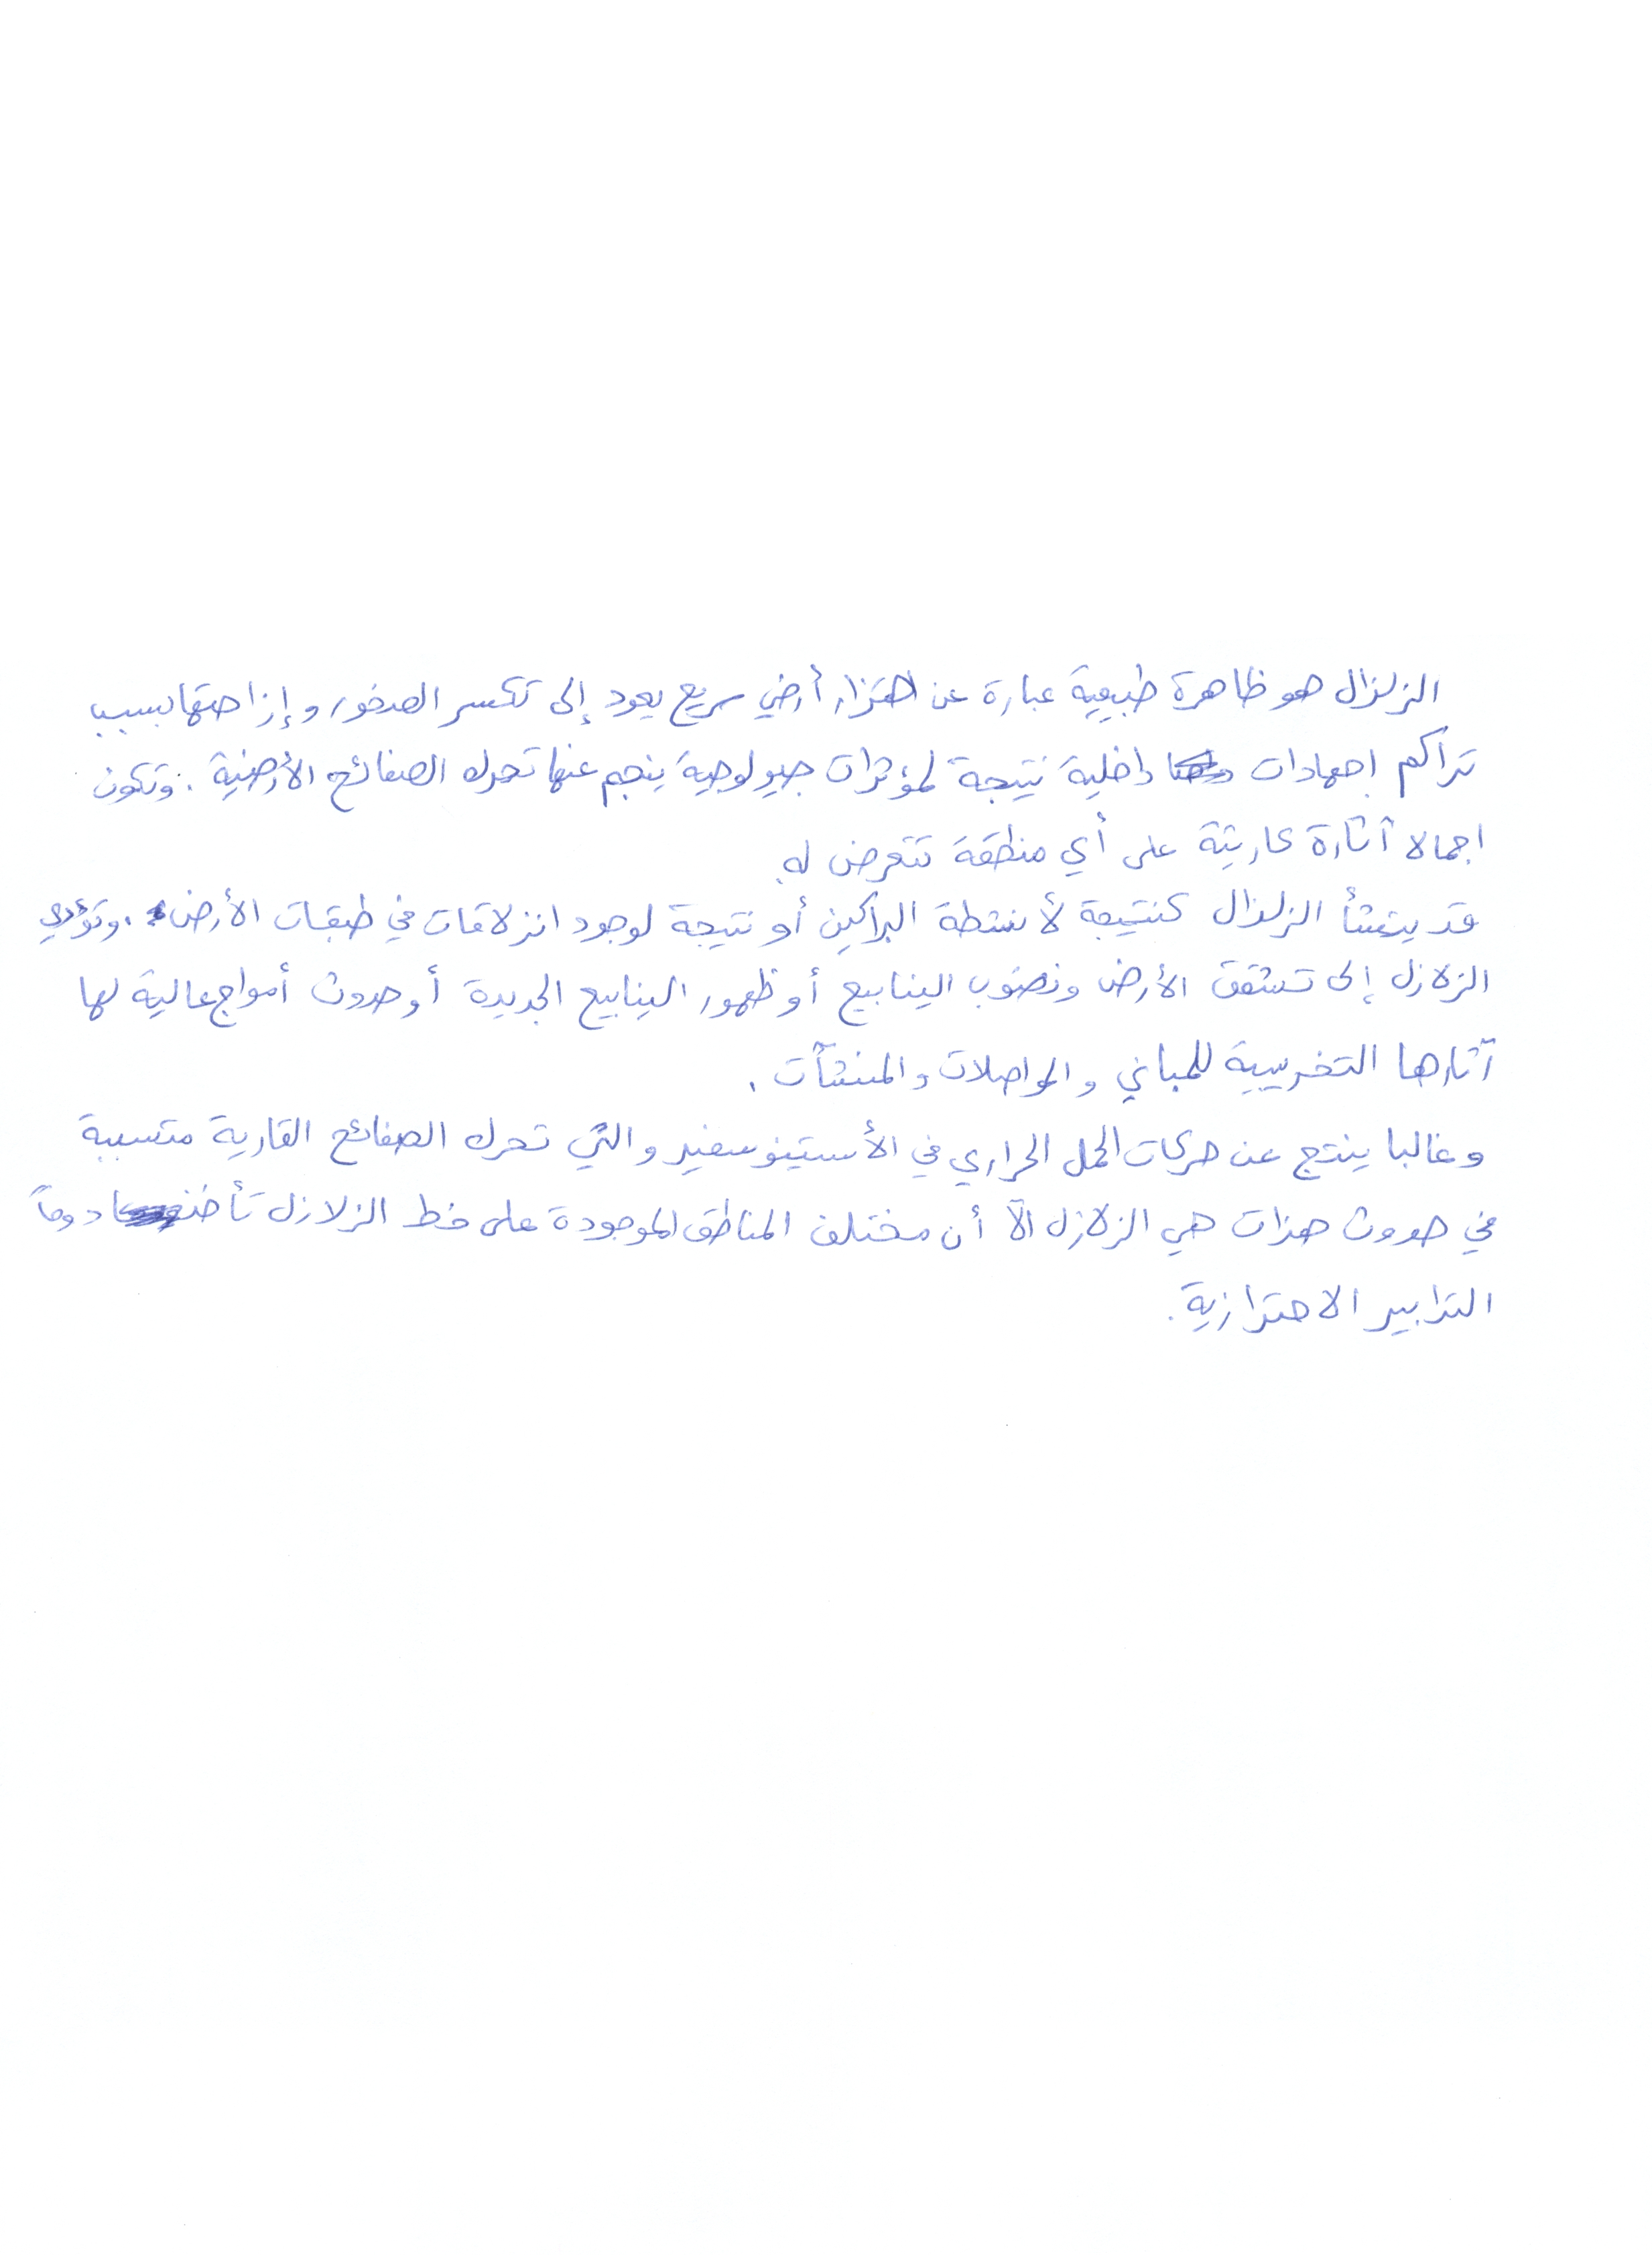 الزلزال هو ظاهرة طبيعية عبارة عن اهتزاز أرضي سريع يعود إلى تكسر الصخور وإزاحتها بسبب
تراكم اجهادات داخلية نتيجة لمؤثرات جيولوجية ينجم عنها تحرك الصفائح الأرضية . وتكون
اجمالا آثارة كارثية على أي منطقة تتعرض له.
قد ينشأ الزلزال كنتيجة لأنشطة البراكين أو نتيجة لوجود انزلاقات في طبقات الأرض . وتؤدي
الزلازل إلى تشقق الأرض ونضوب الينابيع أو ظهور الينابيع الجديدة أو حدوث أمواج عالية لها
آثارها التخريبية للمباني والمواصلات والمنشآت .
وغالبا ينتج عن حركات الحمل الحراري في الأستينوسفير والتي تحرك الصفائح القارية متسببة
في حدوث هزات هي الزلازل الآ أن مختلف المناطق الموجودة على خط الزلازل تأخذ دوماً
التدابير الاحترازية .